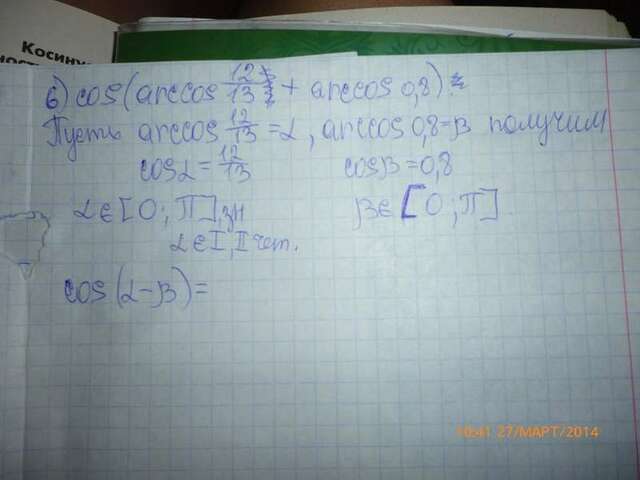 Косинус
ность
б) cos(arccos 12/13 + arccos 0,8)
Пусть arccos 12/13 = α, arccos 0,8 = β получим
cosα = 12/13 cosβ = 0,8
α ∈ [0; П] зн β ∈ [0; П].
α ∈ I, II чет.
cos(α - β) =
10:41 27/МАРТ/2014